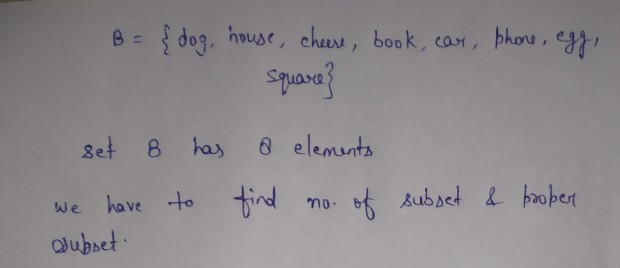 B = { dog, house, cheese, book, car, phone, egg,
square}
set B has 8 elements
we have to find no. of subset & proper
subset.